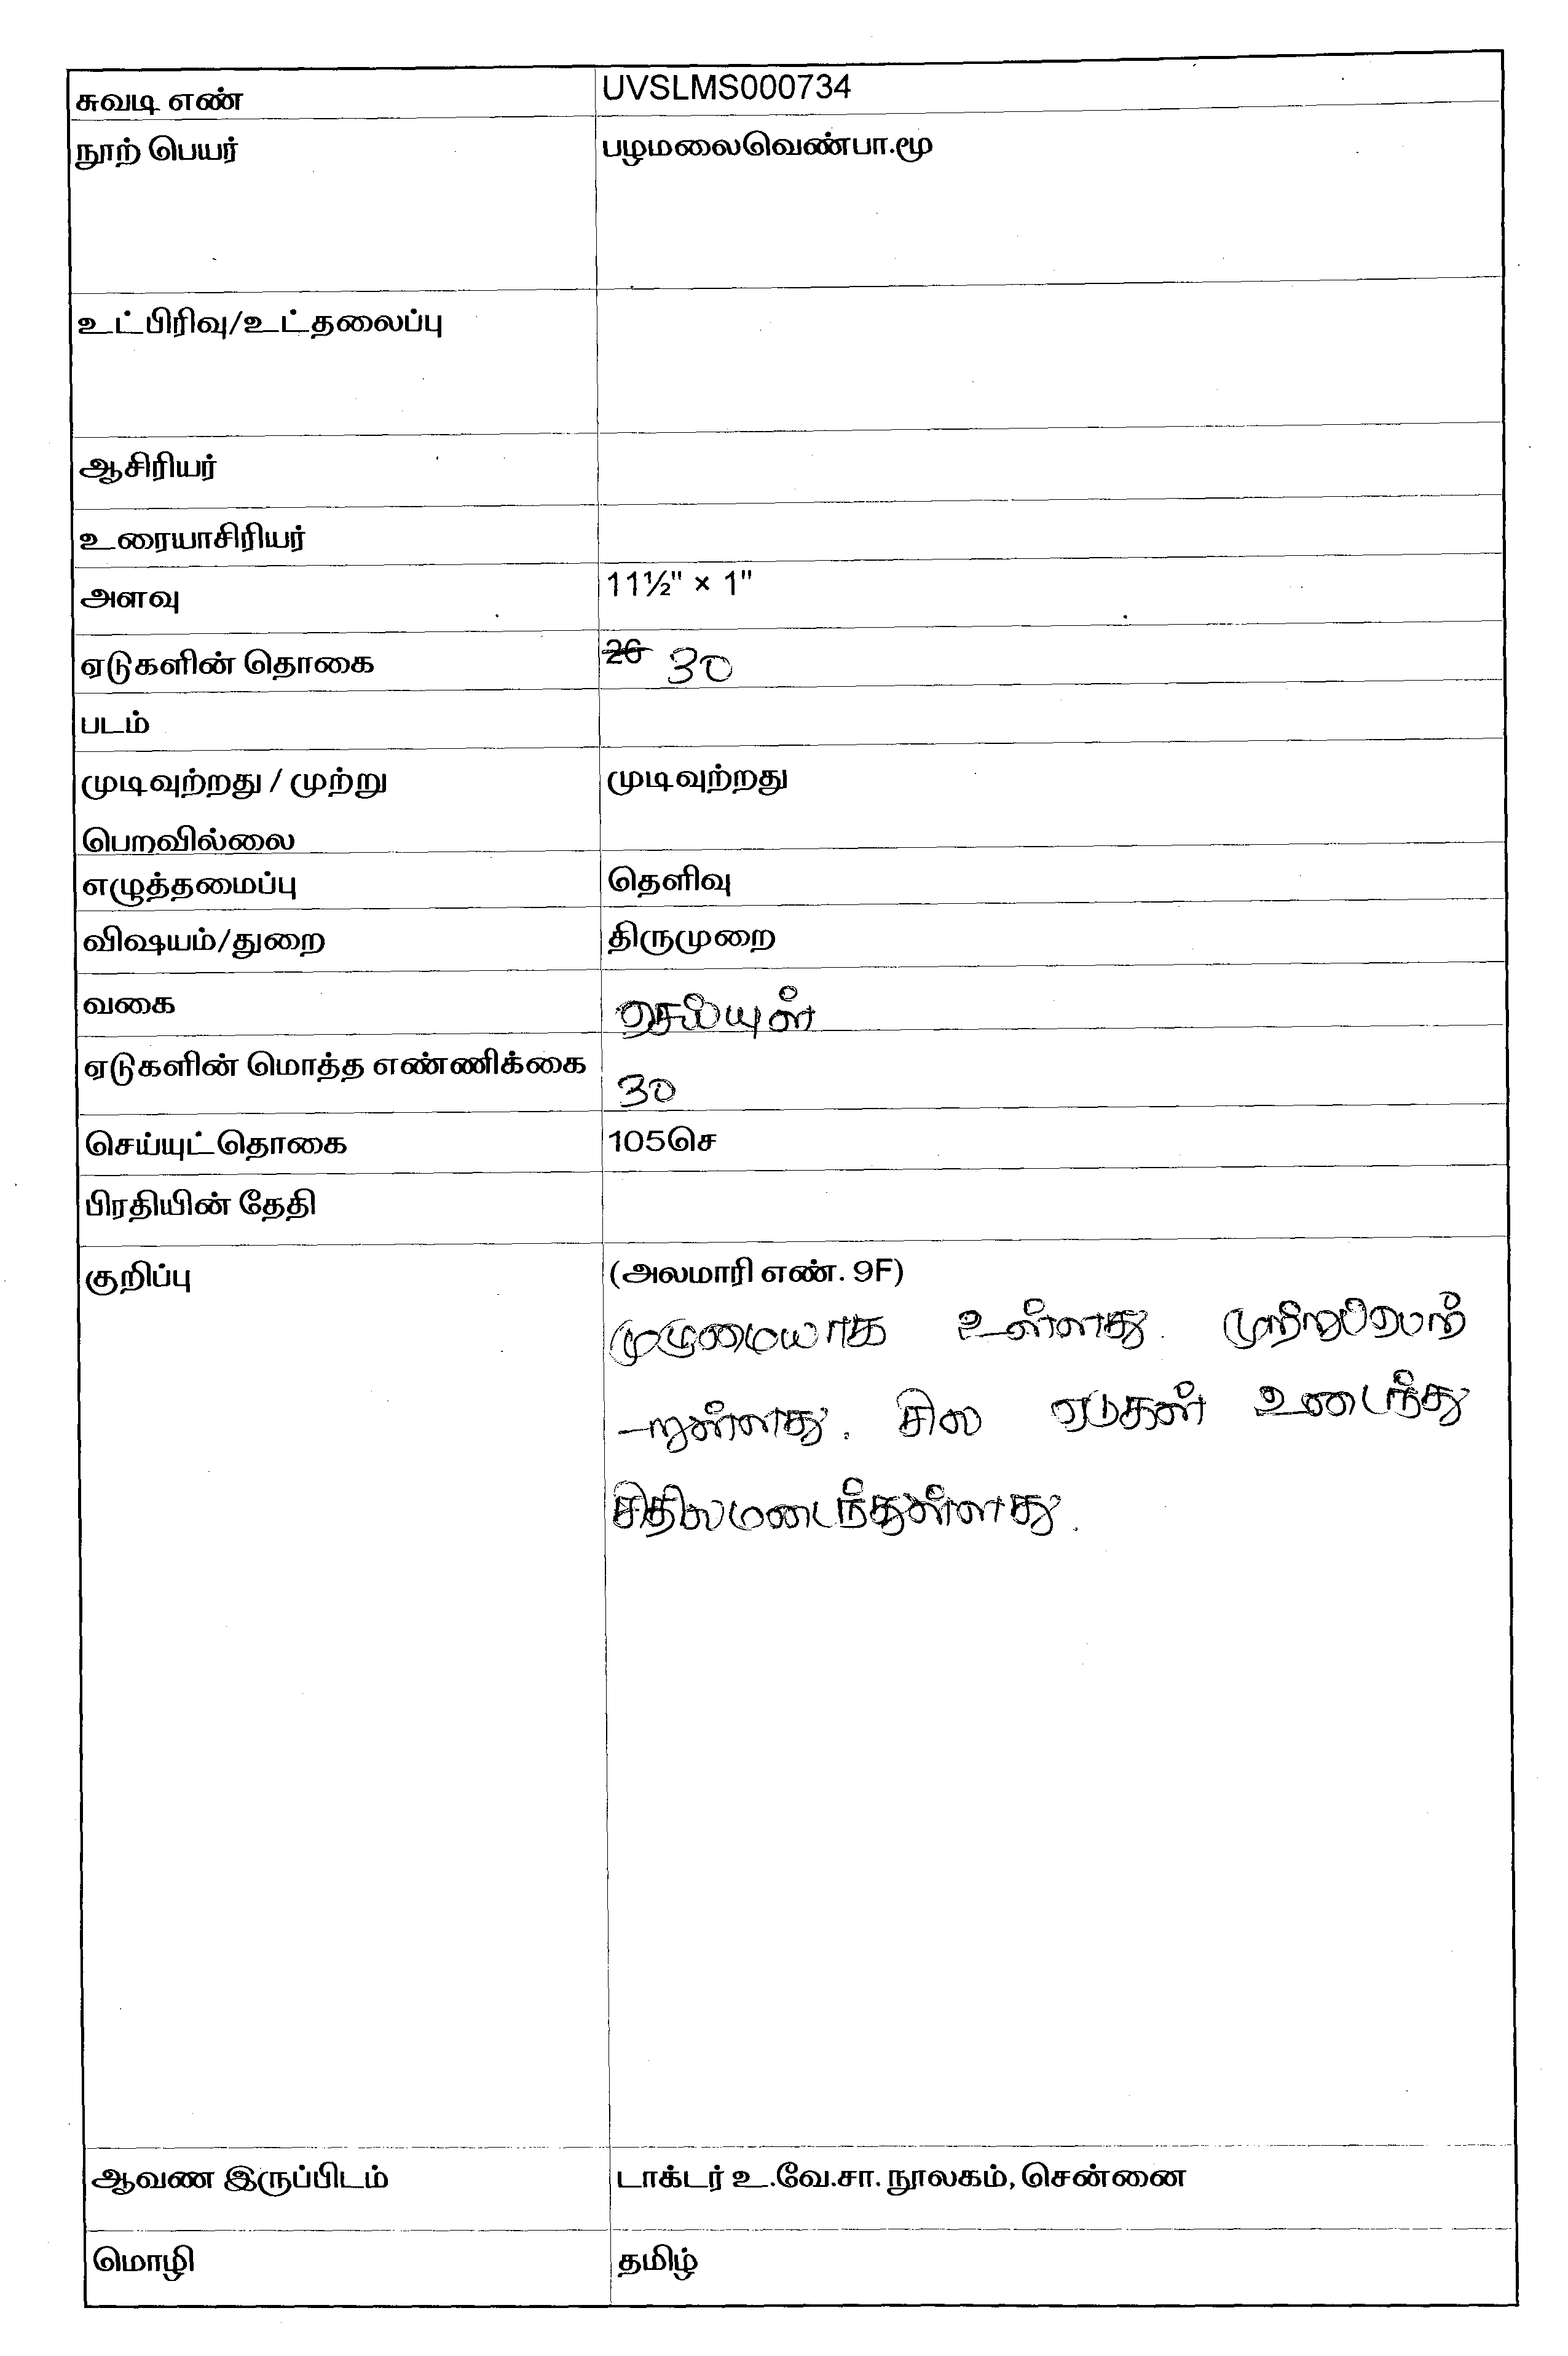 சுவடி எண் UVSLMS000734
நூற் பெயர் பழமலைவெண்பா.மூ
உட்பிரிவு/உட்தலைப்பு
ஆசிரியர்
உரையாசிரியர்
அளவு 11½" × 1"
ஏடுகளின் தொகை 26 30
படம்
முடிவுற்றது / முற்று முடிவுற்றது
பெறவில்லை
எழுத்தமைப்பு தெளிவு
விஷயம்/துறை திருமுறை
வகை செய்யுள்
ஏடுகளின் மொத்த எண்ணிக்கை 30
செய்யுட்தொகை 105செ
பிரதியின் தேதி
குறிப்பு (அலமாரி எண். 9F)
முழுமையாக உள்ளது. முற்றுப்பெற்
-றுள்ளது. சில ஏடுகள் உடைந்து
சிதிலமடைந்துள்ளது.
ஆவண இருப்பிடம் டாக்டர் உ.வே.சா. நூலகம், சென்னை
மொழி தமிழ்